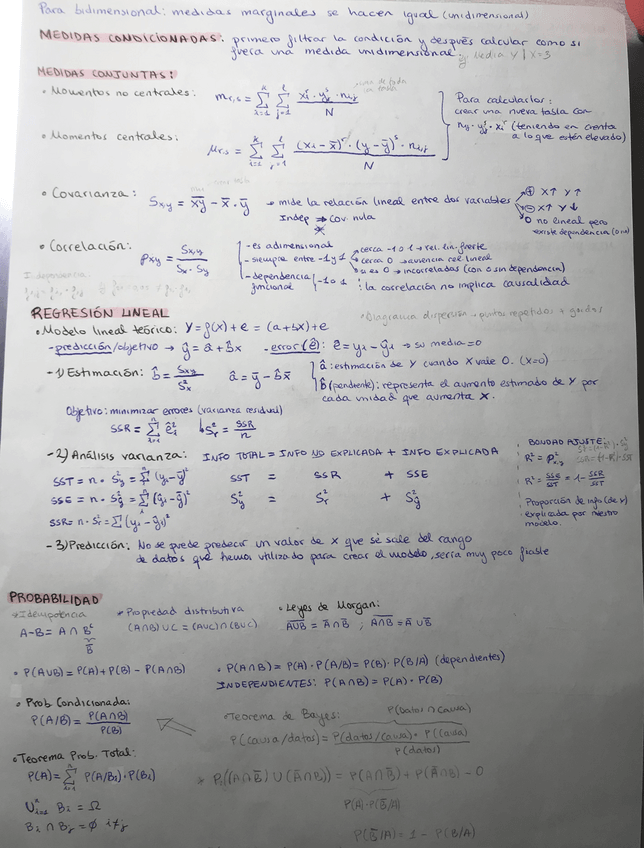 Para bidimensional: medidas marginales se hacen igual (unidimensional)
MEDIDAS CONDICIONADAS: primero filtrar la condición y después calcular como si
fuera una medida unidimensional. ej: Media Y | X=3
MEDIDAS CONJUNTAS:
• Momentos no centrales: m_{r,s} = Σ_{i=1}^{k} Σ_{j=1}^{l} (x_i^r · y_j^s · n_{ij}) / N
Para calcularlos:
crear una nueva tabla con
n_{ij} · y_j^s · x_i^r (teniendo en cuenta
a lo que estén elevado)
• Momentos centrales: μ_{r,s} = Σ_{i=1}^{k} Σ_{j=1}^{l} ((x_i - x̄)^r · (y_j - ȳ)^s · n_{ij}) / N
• Covarianza: S_{x,y} = \overline{xy} - x̄ · ȳ → mide la relación lineal entre dos variables
⊕ X↑ Y↑
⊖ X↑ Y↓
0 no lineal pero
existe dependencia (o no)
Indep ⇒ Cov. nula
• Correlación: ρ_{xy} = S_{x,y} / (S_x · S_y)
- es adimensional
- siempre entre -1 y 1
cerca -1 o 1 → rel. lin. fuerte
cerca 0 → ausencia rel. lineal
si es 0 → incorreladas (con o sin dependencia)
- dependencia funcional
-1 o 1 : la correlación no implica causalidad
REGRESIÓN LINEAL
• Modelo lineal teórico: Y = f(x) + e = (a+bx) + e
• Diagrama dispersión → puntos repetidos + gordos
- predicción/objetivo → ŷ = â + b̂x - error (ê): ê = y_i - ŷ_i → su media = 0
- 1) Estimación: b̂ = S_{xy} / S_x^2 â = ȳ - b̂x̄
â: estimación de Y cuando X vale 0. (x=0)
b̂ (pendiente): representa el aumento estimado de Y por
cada unidad que aumenta X.
Objetivo: minimizar errores (varianza residual)
SSR = Σ_{i=1}^{n} ê_i^2 ↳ S_r^2 = SSR / n
- 2) Análisis varianza: INFO TOTAL = INFO NO EXPLICADA + INFO EXPLICADA
SST = n · S_y^2 = Σ(y_i - ȳ)^2 SST = SSR + SSE
SSE = n · S_ŷ^2 = Σ(ŷ_i - ȳ)^2 S_y^2 = S_r^2 + S_ŷ^2
SSR = n · S_r^2 = Σ(y_i - ŷ_i)^2
BONDAD AJUSTE:
R^2 = ρ_{x,y}^2
R^2 = SSE / SST = 1 - SSR / SST
Proporción de info (de Y)
explicada por nuestro
modelo.
- 3) Predicción: No se puede predecir un valor de x que se sale del rango
de datos que hemos utilizado para crear el modelo, sería muy poco fiable
PROBABILIDAD
* Idempotencia
A-B = A ∩ B^c
B̄
* Propiedad distributiva
(A∩B) ∪ C = (A∪C) ∩ (B∪C)
• Leyes de Morgan:
\overline{A∪B} = Ā ∩ B̄ ; \overline{A∩B} = Ā ∪ B̄
• P(A∪B) = P(A) + P(B) - P(A∩B)
• P(A∩B) = P(A) · P(A/B) = P(B) · P(B/A) (dependientes)
INDEPENDIENTES: P(A∩B) = P(A) · P(B)
• Prob. Condicionada:
P(A/B) = P(A∩B) / P(B)
- Teorema de Bayes: P(Datos ∩ causa)
P(causa/datos) = P(datos/causa) · P(causa) / P(datos)
• Teorema Prob. Total:
P(A) = Σ_{i=1}^{n} P(A/B_i) · P(B_i)
U_{i=1}^{n} B_i = Ω
B_i ∩ B_j = ∅ i≠j
* P((A∩B̄) ∪ (Ā∩B)) = P(A∩B̄) + P(Ā∩B) - 0
P(A) · P(B̄/A)
P(B̄/A) = 1 - P(B/A)